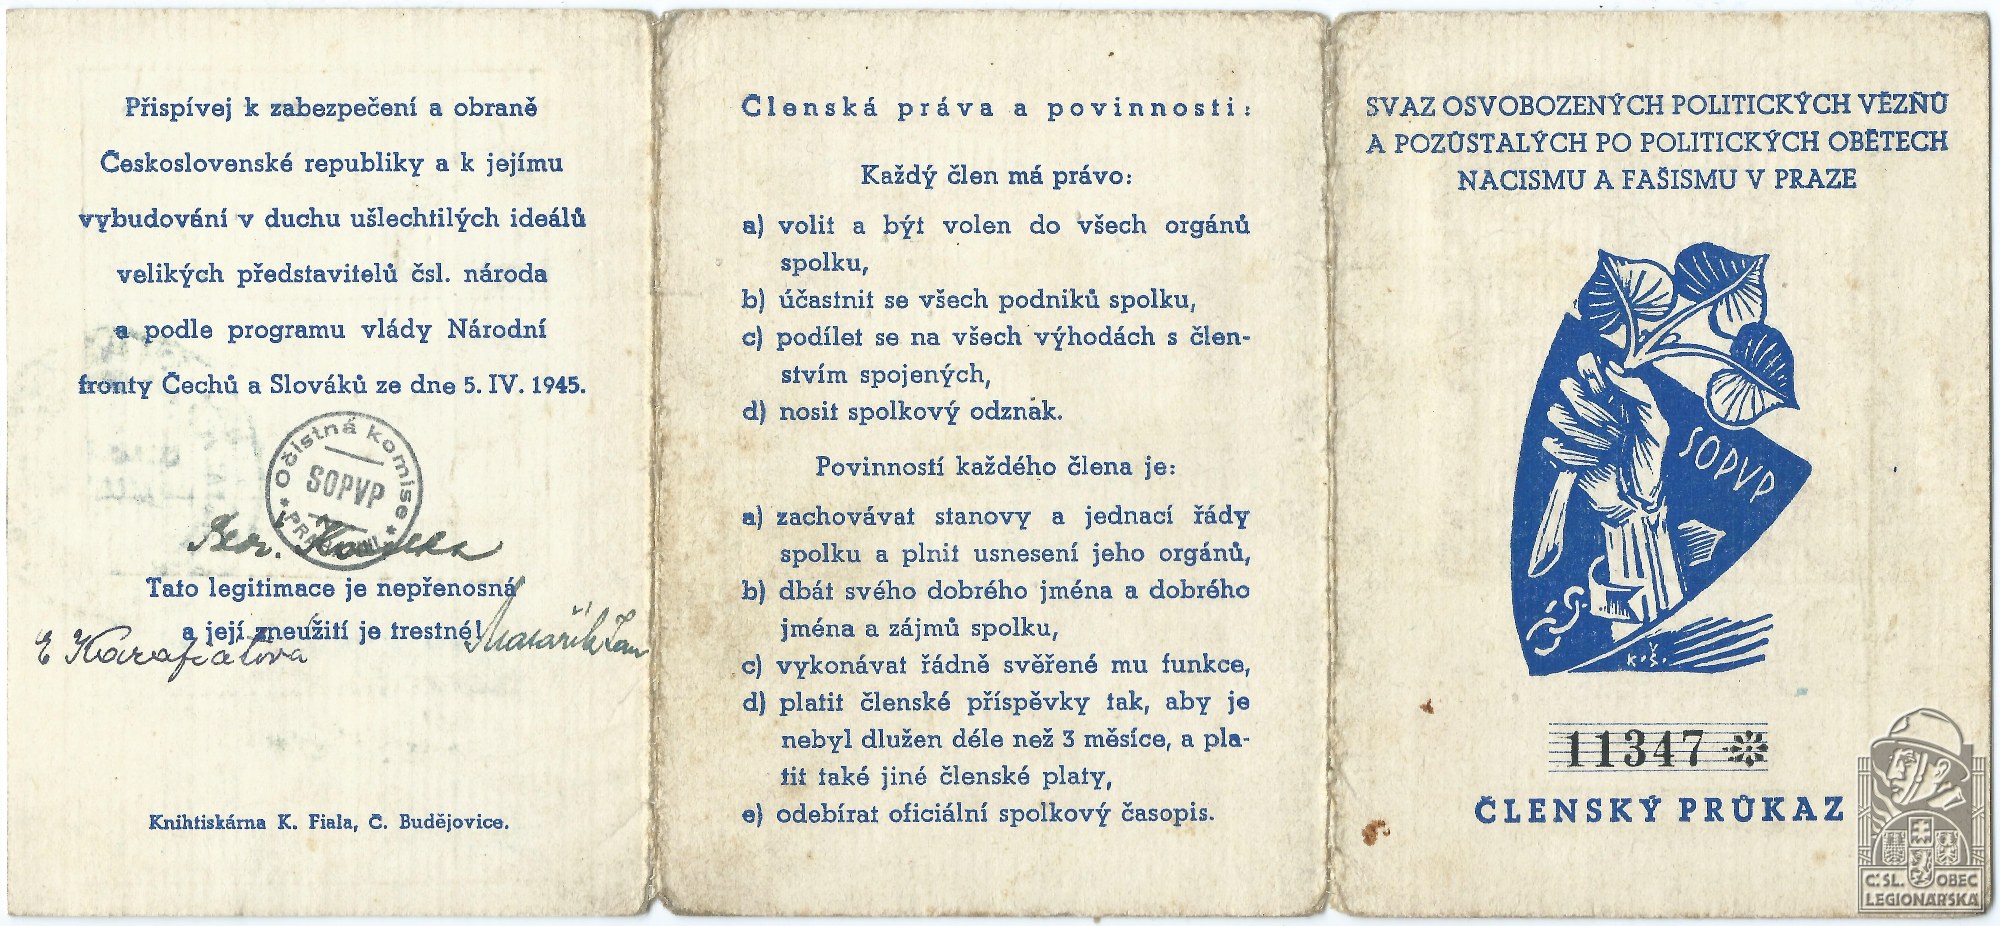 Přispívej k zabezpečení a obraně
Československé republiky a k jejímu
vybudování v duchu ušlechtilých ideálů
velikých představitelů čsl. národa
a podle programu vlády Národní
fronty Čechů a Slováků ze dne 5. IV. 1945.
Očistná komise
SOPVP
Tato legitimace je nepřenosná
a její zneužití je trestné!
E Karafiatova
Knihtiskárna K. Fiala, Č. Budějovice.
Členská práva a povinnosti:
Každý člen má právo:
a) volit a být volen do všech orgánů
spolku,
b) účastnit se všech podniků spolku,
c) podílet se na všech výhodách s člen-
stvím spojených,
d) nosit spolkový odznak.
Povinností každého člena je:
a) zachovávat stanovy a jednací řády
spolku a plnit usnesení jeho orgánů,
b) dbát svého dobrého jména a dobrého
jména a zájmů spolku,
c) vykonávat řádně svěřené mu funkce,
d) platit členské příspěvky tak, aby je
nebyl dlužen déle než 3 měsíce, a pla-
tit také jiné členské platy,
e) odebírat oficiální spolkový časopis.
SVAZ OSVOBOZENÝCH POLITICKÝCH VĚZŇŮ
A POZŮSTALÝCH PO POLITICKÝCH OBĚTECH
NACISMU A FAŠISMU V PRAZE
SOPVP
K.Š.
11347
ČLENSKÝ PRŮKAZ
Č.SL. OBEC
LEGIONÁŘSKÁ